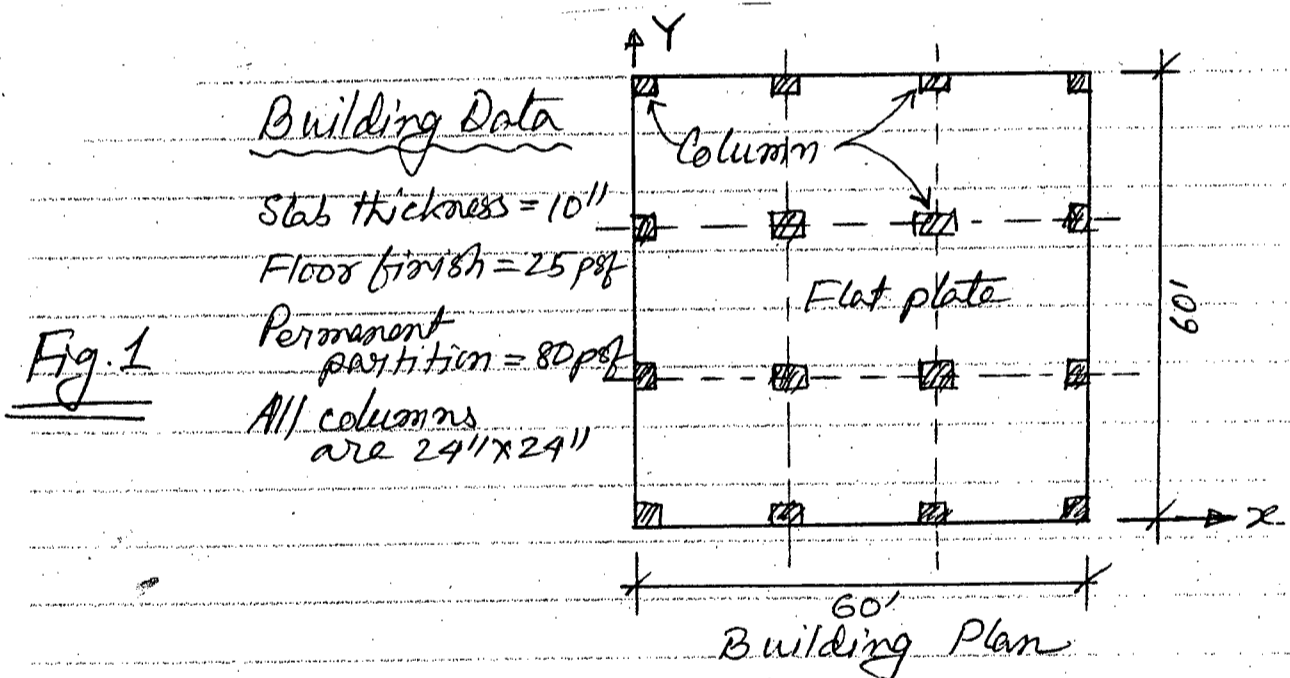 Y
Building Data
Column
Slab thickness = 10"
Floor finish = 25 psf
Flat plate
Permanent
partition = 80 psf
Fig. 1
All columns
are 24"x24"
60'
x
60'
Building Plan